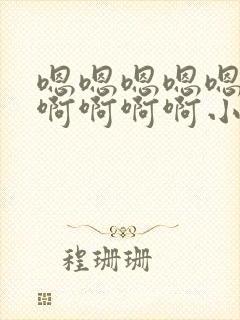 嗯嗯嗯嗯嗯
啊啊啊啊小
程珊珊